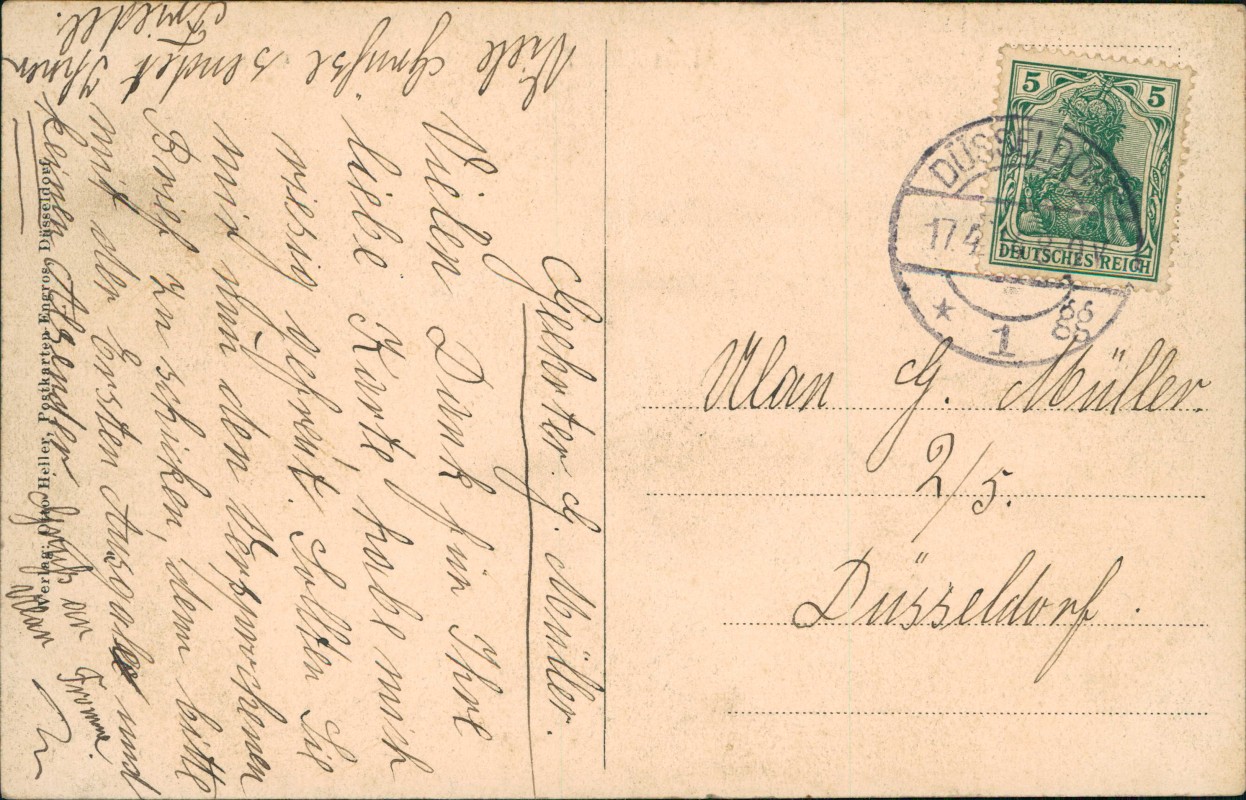 Geehrter. G. Müller.
Vielen Dank für Ihre
liebe Karte, habe mich
riesig gefreut. Sollten Sie
mir nun den Versprochenen
Brief zu schicken, denn bitte
mit der Ersten Ausgabe und
keinen Absender
Gruß an Fromme.
Viele Grüße sendet Ihnen
Friedel.
Verlag: Otto Heller, Postkarten-Engros, Düsseldorf
5 5
DEUTSCHES REICH
DÜSSELDORF
17.4
* 1 gg
Ulan G. Müller.
2/5.
Düsseldorf.